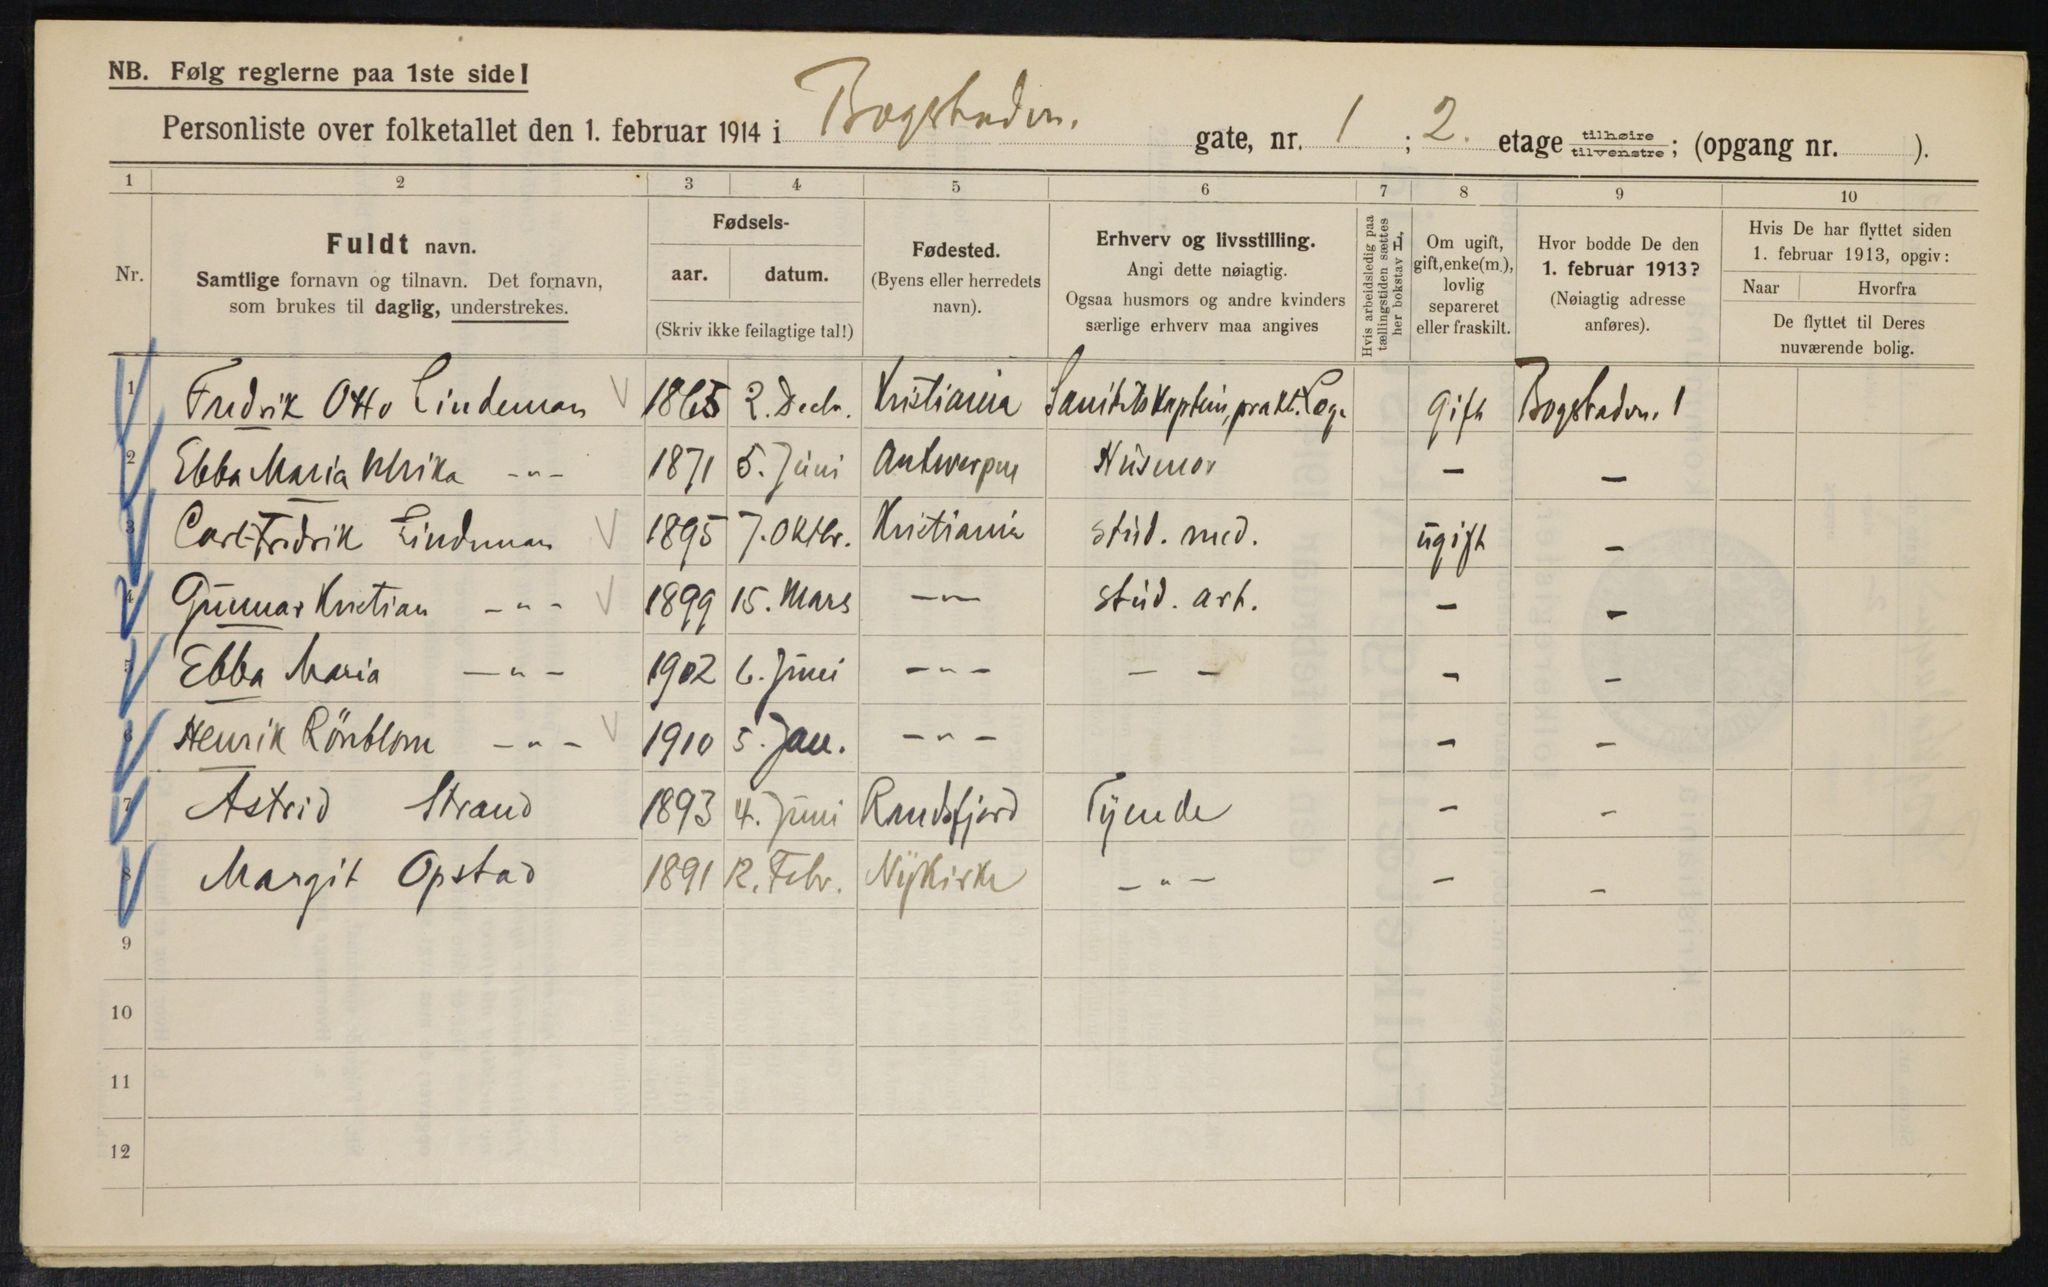 NB. Følg reglerne paa 1ste side!
Personliste over folketallet den 1. februar 1914 i Bogstadvn. gate, nr. 1 ; 2. etage tilhøire tilvenstre; (opgang nr. ).
1 2 3 4 5 6 7 8 9 10
Nr.
Fuldt navn.
Samtlige fornavn og tilnavn. Det fornavn,
som brukes til daglig, understrekes.
Fødsels-
aar. datum.
(Skriv ikke feilagtige tal!)
Fødested.
(Byens eller herredets
navn).
Erhverv og livsstilling.
Angi dette nøiagtig.
Ogsaa husmors og andre kvinders
særlige erhverv maa angives
Hvis arbeidsledig paa
tællingstiden sættes
her bokstav L.
Om ugift,
gift, enke(m.),
lovlig
separeret
eller fraskilt.
Hvor bodde De den
1. februar 1913?
(Nøiagtig adresse
anføres).
Hvis De har flyttet siden
1. februar 1913, opgiv:
Naar Hvorfra
De flyttet til Deres
nuværende bolig.
1 Fredrik Otto Lindeman 1865 2. Decbr. Kristiania Sanitetskaptein, prakt. Læge gift Bogstadvn. 1
2 Ebba Maria Ulrika -"- 1871 5. Juni Antwerpen Husmor - -
3 Carl Fredrik Lindeman 1895 7. Oktbr. Kristiania stud. med. ugift -
4 Gunnar Kristian -"- 1899 15. Mars -"- stud. art. - -
5 Ebba Maria -"- 1902 6. Juni -"- - - - -
6 Henrik Rönblom -"- 1910 5. Jan. -"- - -
7 Astrid Strand 1893 4. Juni Randsfjord Tyende - -
8 Margit Opstad 1891 12. Febr. Nykirke -"- - -
9
10
11
12